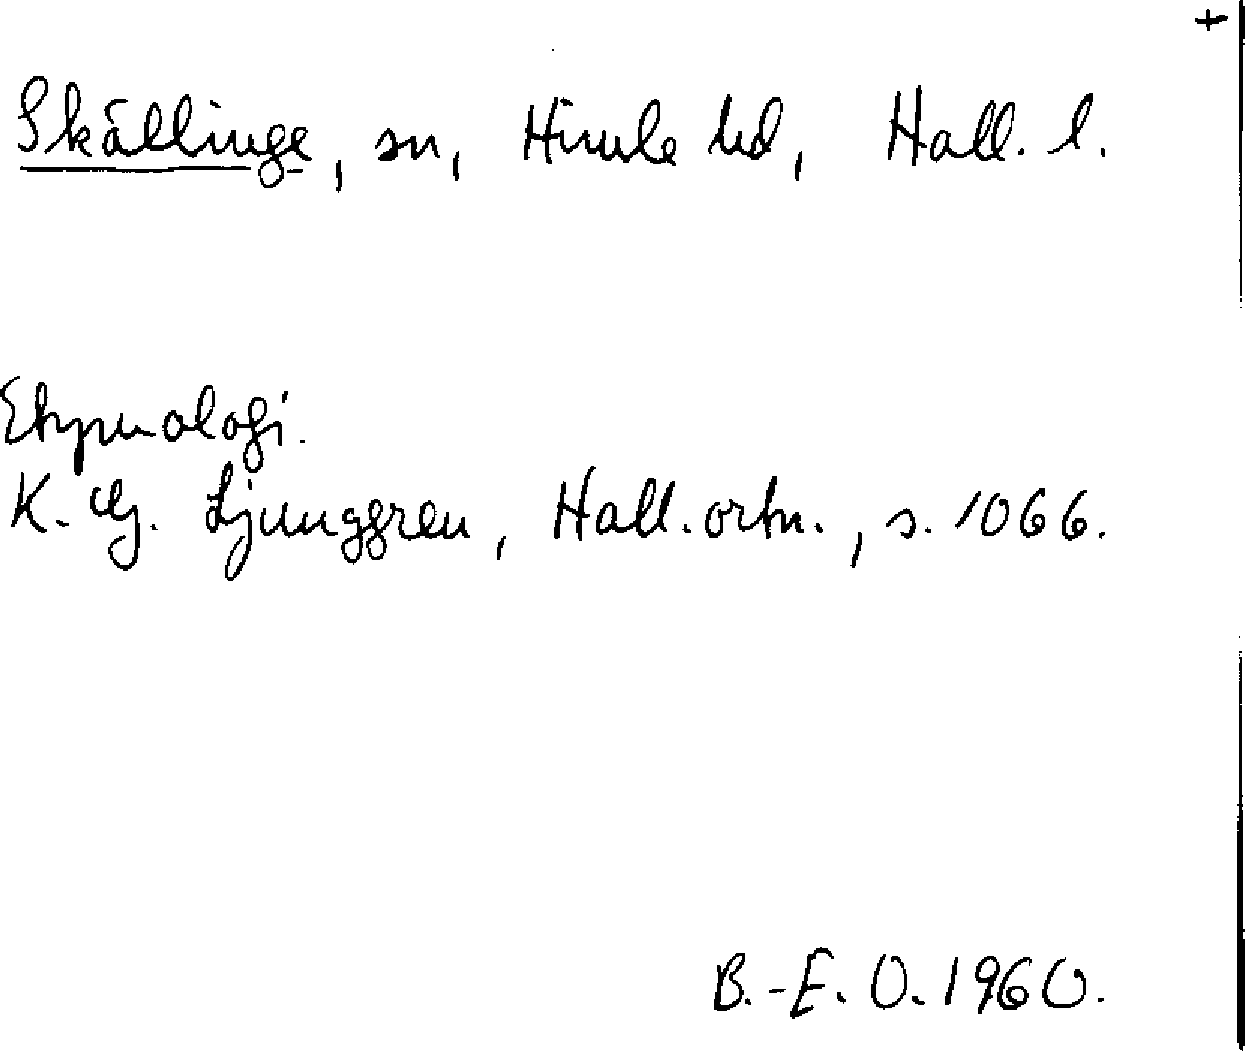 +
Skällinge, sn, Himle hd, Hall. l.
Etymologi.
K. G. Ljunggren, Hall. ortn., s. 1066.
B.-E. O. 1960.